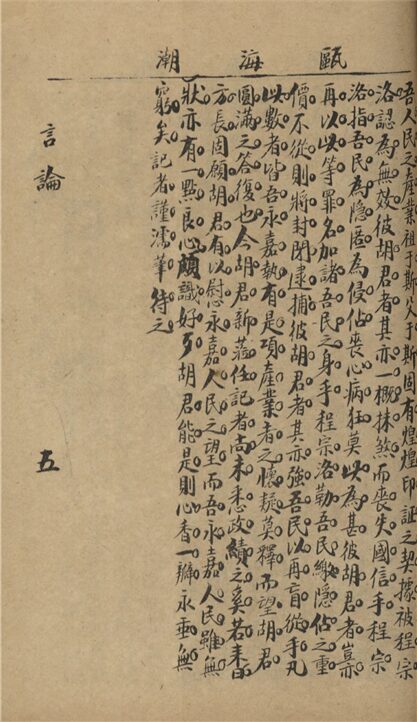 甌海潮
吾人民之產業祖于斯父于斯固有煌煌印証之契據被程宗
洛認為無效彼胡君者其亦一概抹煞而喪失國信乎程宗
洛指吾民為隱匿為侵佔喪心病狂莫此為甚彼胡君者豈亦
再以此等罪名加諸吾民之身乎程宗洛勒吾民繳隱佔之重
價不從則將封閉逮捕彼胡君者其亦強吾民以再盲從乎凡
此數者皆吾永嘉執有是項產業者之懷疑莫釋而望胡君
圓滿之答復也今胡君新蒞任記者尚未悉政績之奚若来日
方長固願胡君有以慰永嘉人民之望而吾永嘉人民雖無
狀亦有一點良心頗識好歹胡君能是則心香一瓣永垂無
窮矣記者謹濡筆待之
言論
五